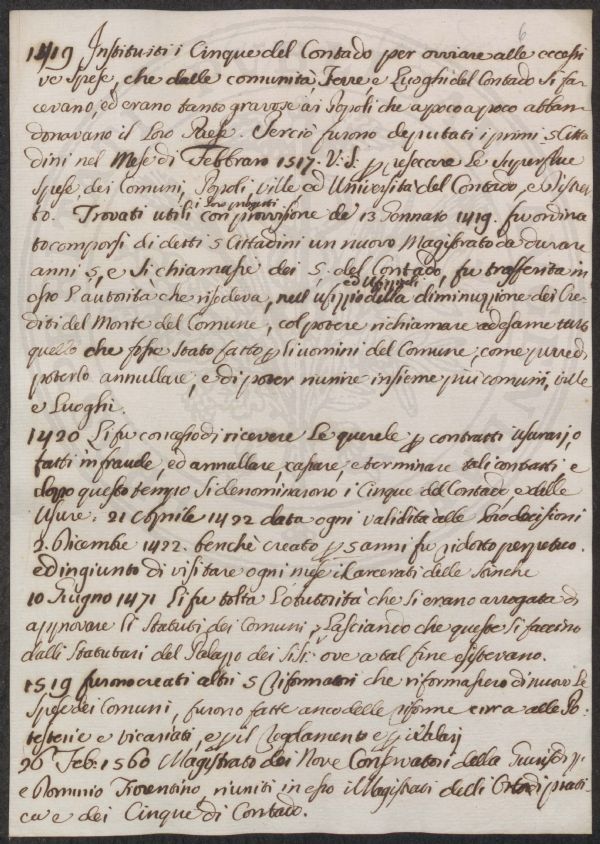 6
1419 Instituiti i Cinque del Contado per ovviare alle eccessi
ve Spese, che dalle comunità, Terre, e Luoghi del Contado si fa-
cevano, ed erano tanto gravose ai Popoli che a poco a poco abban-
donavano il Loro Paese. Perciò furono deputati i primi 5 Citta
dini nel Mese di Febbraro 1517. V.S: p resecare Le superflue
Spese, dei Comuni, Popoli, ville ed Università del Contado, e Distret
to. Trovati utili i loro progetti con provvisione de 13 Gennato 1419. fu ordina
to comporsi di detti 5 Cittadini un nuovo Magistrato da durare
anni 5, e si chiamasse dei 5. del Contado, fu trasferita in
esso l'autorità che risedeva, nell'ufizzio ed Ufizziali della diminuzione dei Cre
diti del Monte del Comune, col potere richiamare ad esame tutto
quello che fosse stato fatto p li uomini del Comune, come pure di
poterlo annullare, e di poter riunire insieme più comuni, ville
e Luoghi.
1420 Li fu concesso di ricevere Le querele p contratti usurarj o
fatti in fraude, ed annullare, cassare, e terminare tali contratti e
dopo questo tempo si denominarono i Cinque del Contado, e delle
Usure: 21 Aprile 1422 data ogni validità alle loro decisioni
2. Dicembre 1422. benchè creato p 5 anni fu ridotto perpetuo.
ed ingiunto di visitare ogni mese i Carcerati delle Stinche
10 Giugno 1471 Li fu tolta L'autorità che si erano arrogata di
approvare li Statuti dei Comuni, Lasciando che questo si faccino
dalli Statutari del Palazzo dei SS:ri ove a tal fine esistevano.
1519 furono creati altri 5 Riformatori che riformassero di nuovo Le
Spese dei Comuni, furono fatte anco delle riforme circa alle Po-
testerie e vicariati, e p il Regolamento e p i Salarj
26 Feb: 1560 Magistrato dei Nove Conservatori della Giurisd:ne
e Dominio Fiorentino, riuniti in esso i Magistrati degli Otto di prati
ca e dei Cinque di Contado.